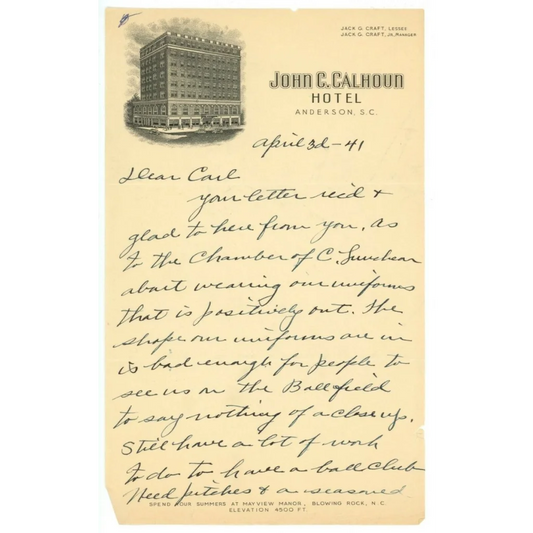 JACK G. CRAFT, LESSEE
JACK G. CRAFT, JR., MANAGER
JOHN C. CALHOUN
HOTEL
ANDERSON, S.C.
April 3d - 41
Dear Carl
your letter recd +
glad to here from you, as
to the Chamber of C. Luncheon
abart wearing our uniforms
that is positively out. The
shape our uniforms are in
is bad enough for people to
see us on the Ball field
to say nothing of a close up.
Still have a lot of work
to do to have a ball club
Need pitches & a seasoned
SPEND YOUR SUMMERS AT MAYVIEW MANOR, BLOWING ROCK, N.C.
ELEVATION 4500 FT.